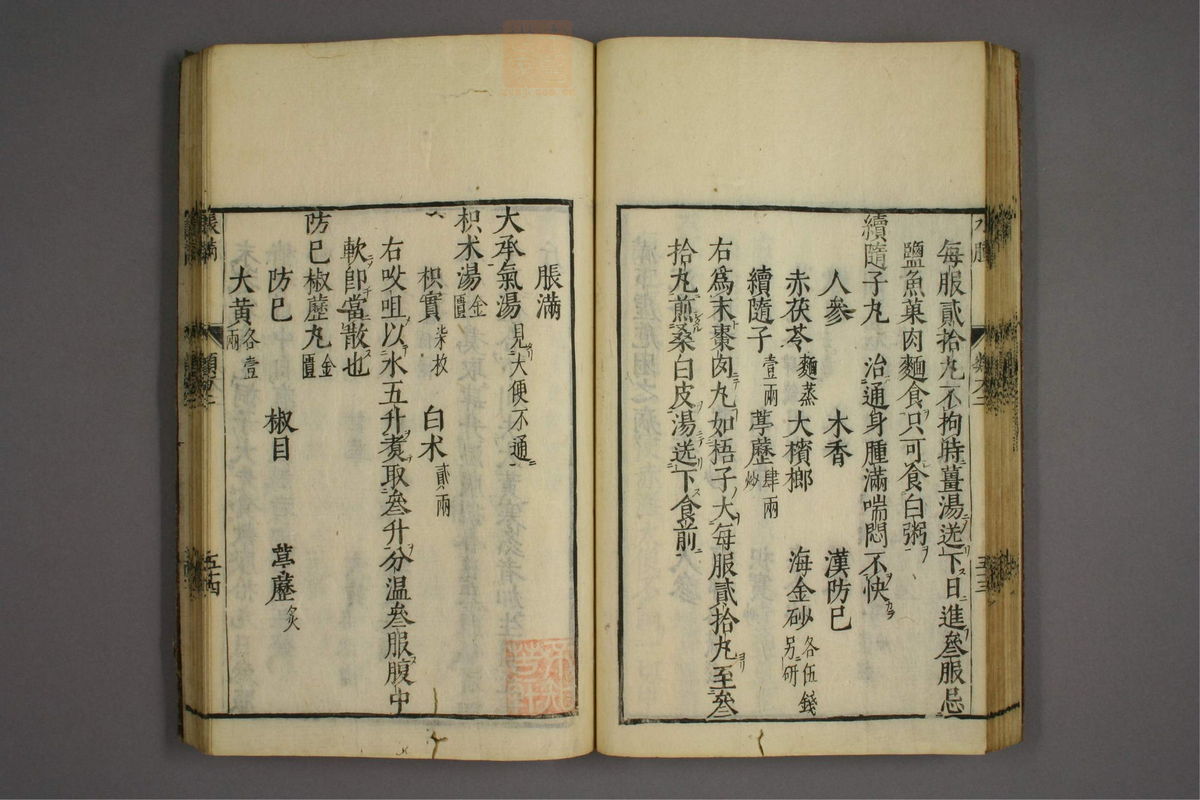 每服貳拾丸不拘時薑湯送下日進叄服忌
鹽魚菓肉麵食只可食白粥
續隨子丸 治通身腫滿喘悶不快
人參 木香 漢防已
赤茯苓麵蒸 大檳榔 海金砂各伍錢另研
續隨子壹兩 葶藶肆兩炒
右爲末棗肉丸如梧子大每服貳拾丸至叄
拾丸煎桑白皮湯送下食前
脹滿
大承氣湯見大便不通
枳朮湯金匱
枳實柒枚 白朮貳兩
右㕮咀以水五升煑取叄升分温叄服腹中
軟卽當散也
防已椒藶丸金匱
防已 椒目 葶藶炙
大黃各壹兩
脹滿
五十四
五十三